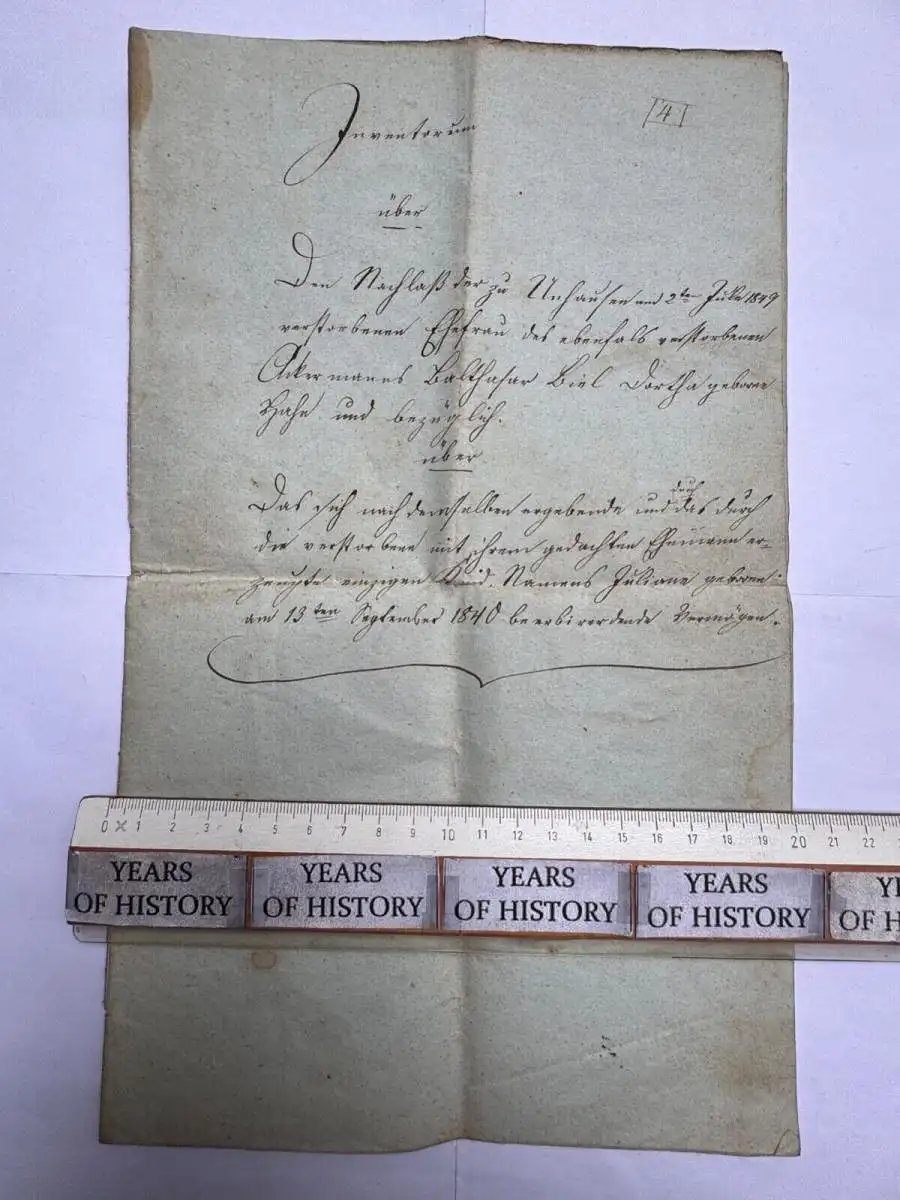 Inventorum
[4]
über
Den Nachlaß der zu Unhausen am 2ten Julie 1849
verstorbenen Ehefrau des ebenfals verstorbenen
Ackermanns Balthasar Biel Dortha geborne
Hahn und bezüglich.
über
Das sich nach demselben ergebende und durch das durch
die verstorbene mit ihrem gedachten Ehemann er-
zeugte einzigen Kind, Namens Juliane geboren
am 13ten September 1840 beerbt werdende Vermögen.
0 1 2 3 4 5 6 7 8 9 10 11 12 13 14 15 16 17 18 19 20 21 22
YEARS OF HISTORY YEARS OF HISTORY YEARS OF HISTORY YEARS OF HISTORY